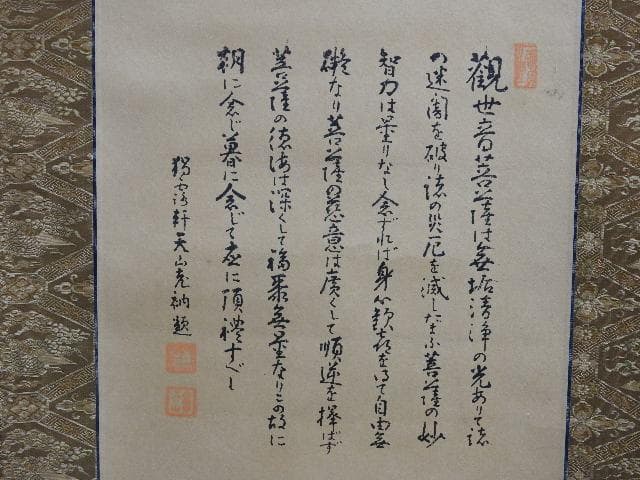 觀世音菩薩は無垢清浄の光ありて諸
の迷闇を破り諸の災厄を滅したまふ菩薩の妙
智力は量りなし念ずれば身心歓喜を得て自由無
礙なり菩薩の慈意は広くして順逆を擇ばず
菩薩の徳海は深くして福聚無量なりこの故に
朝に念じ暮に念じて應に頂禮すべし
軒天山老衲題